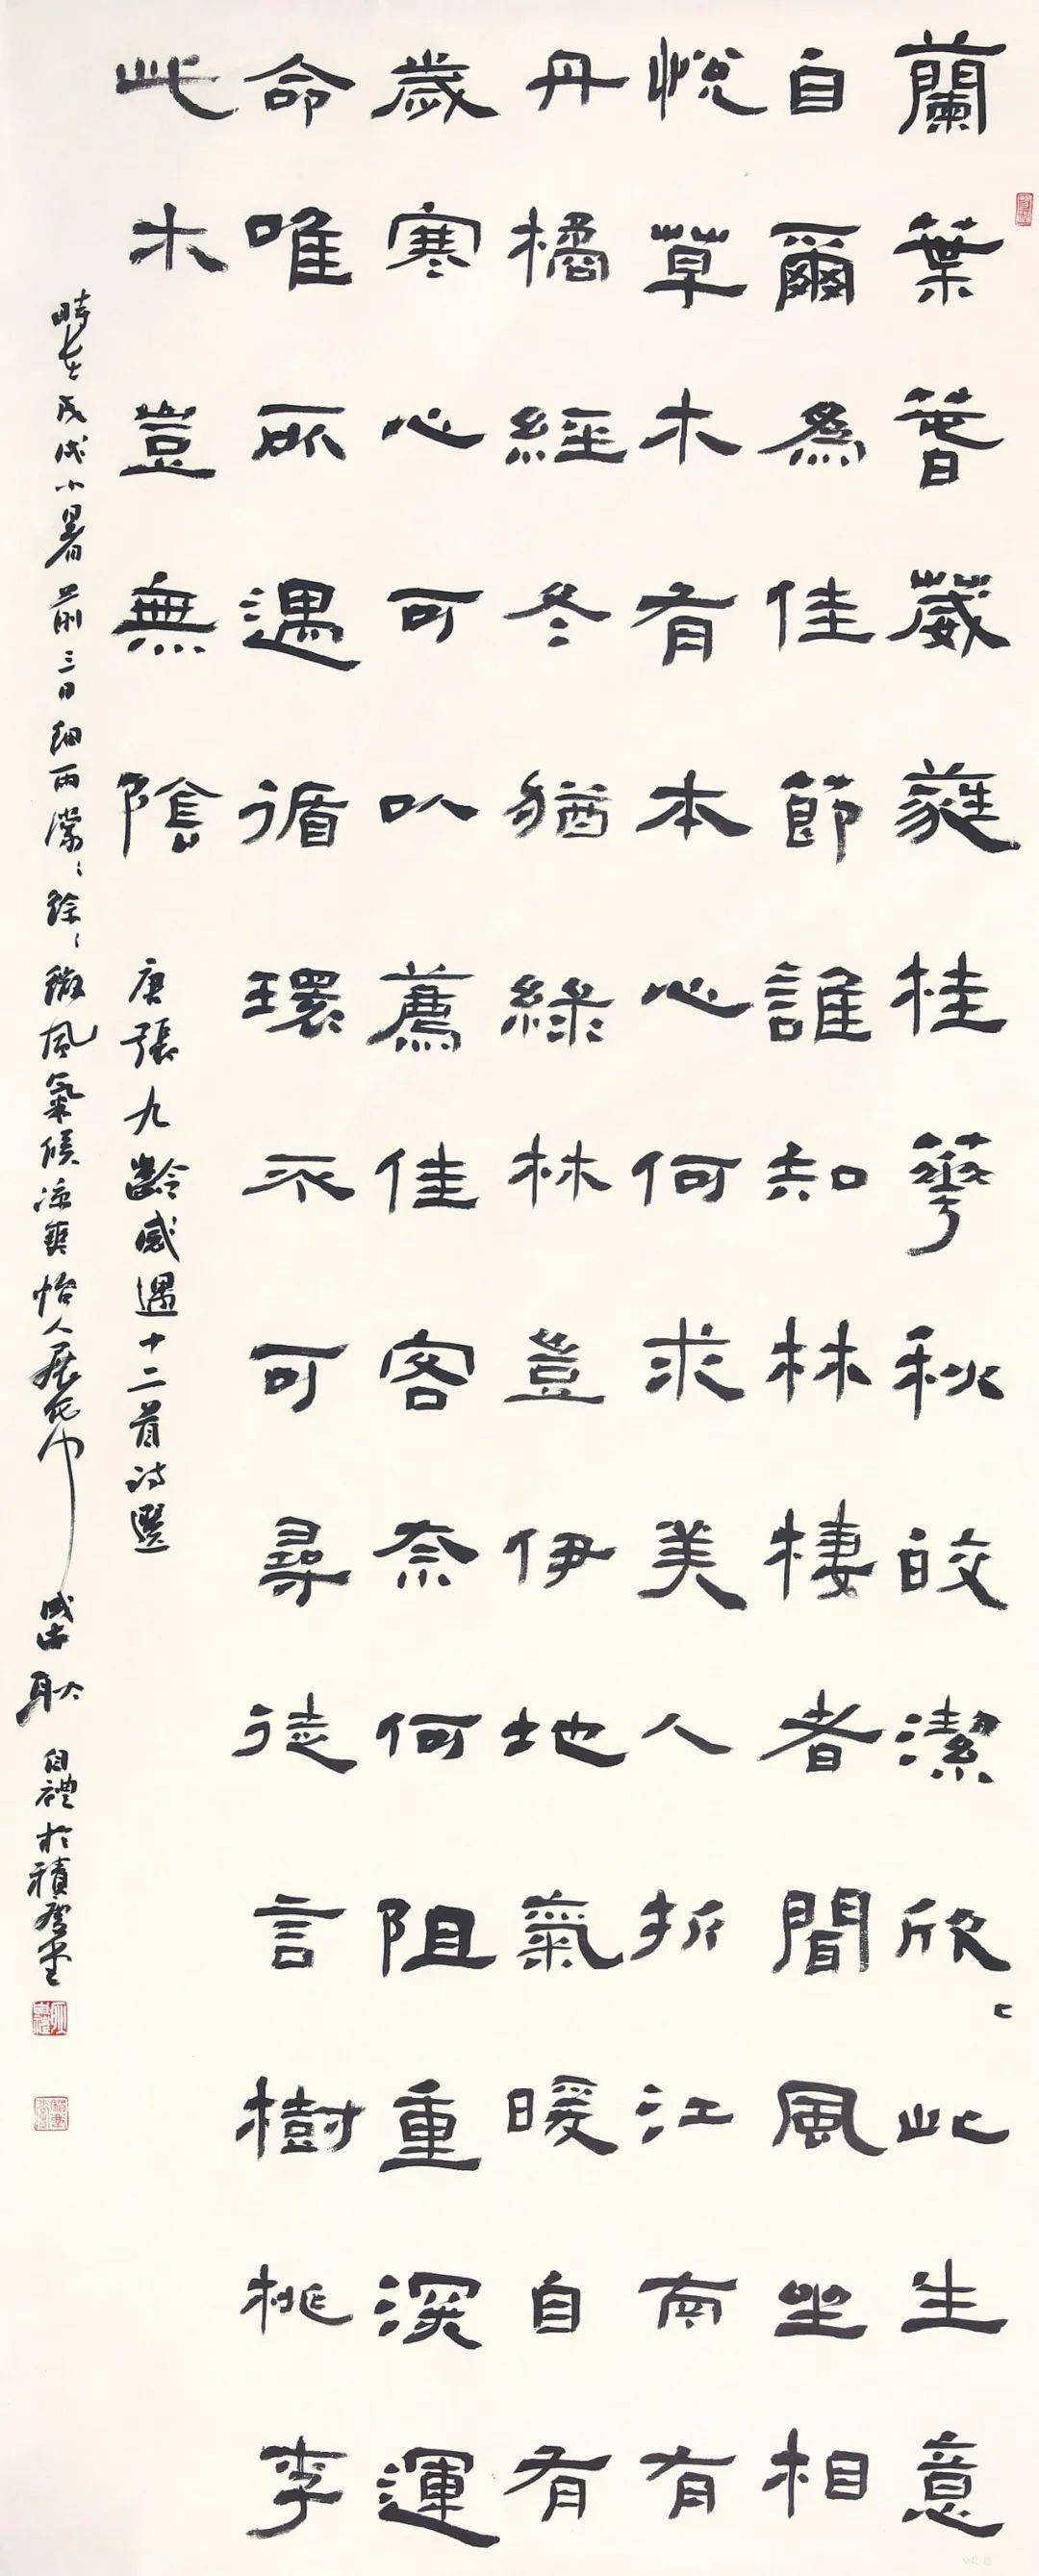 蘭葉春葳蕤桂華秋皎潔欣〻此生意
自爾爲佳節誰知林棲者聞風坐相
悅草木有本心何求美人折江南有
丹橘經冬猶綠林豈伊地氣暖自有
歲寒心可以薦佳客奈何阻重深運
命唯所遇循環不可尋徒言樹桃李
此木豈無陰
唐張九齡感遇十二首詩選
時在戊戌小暑前三日細雨濛〻徐〻微風氣候涼爽怡人展紙 耿自禮於積慶堂